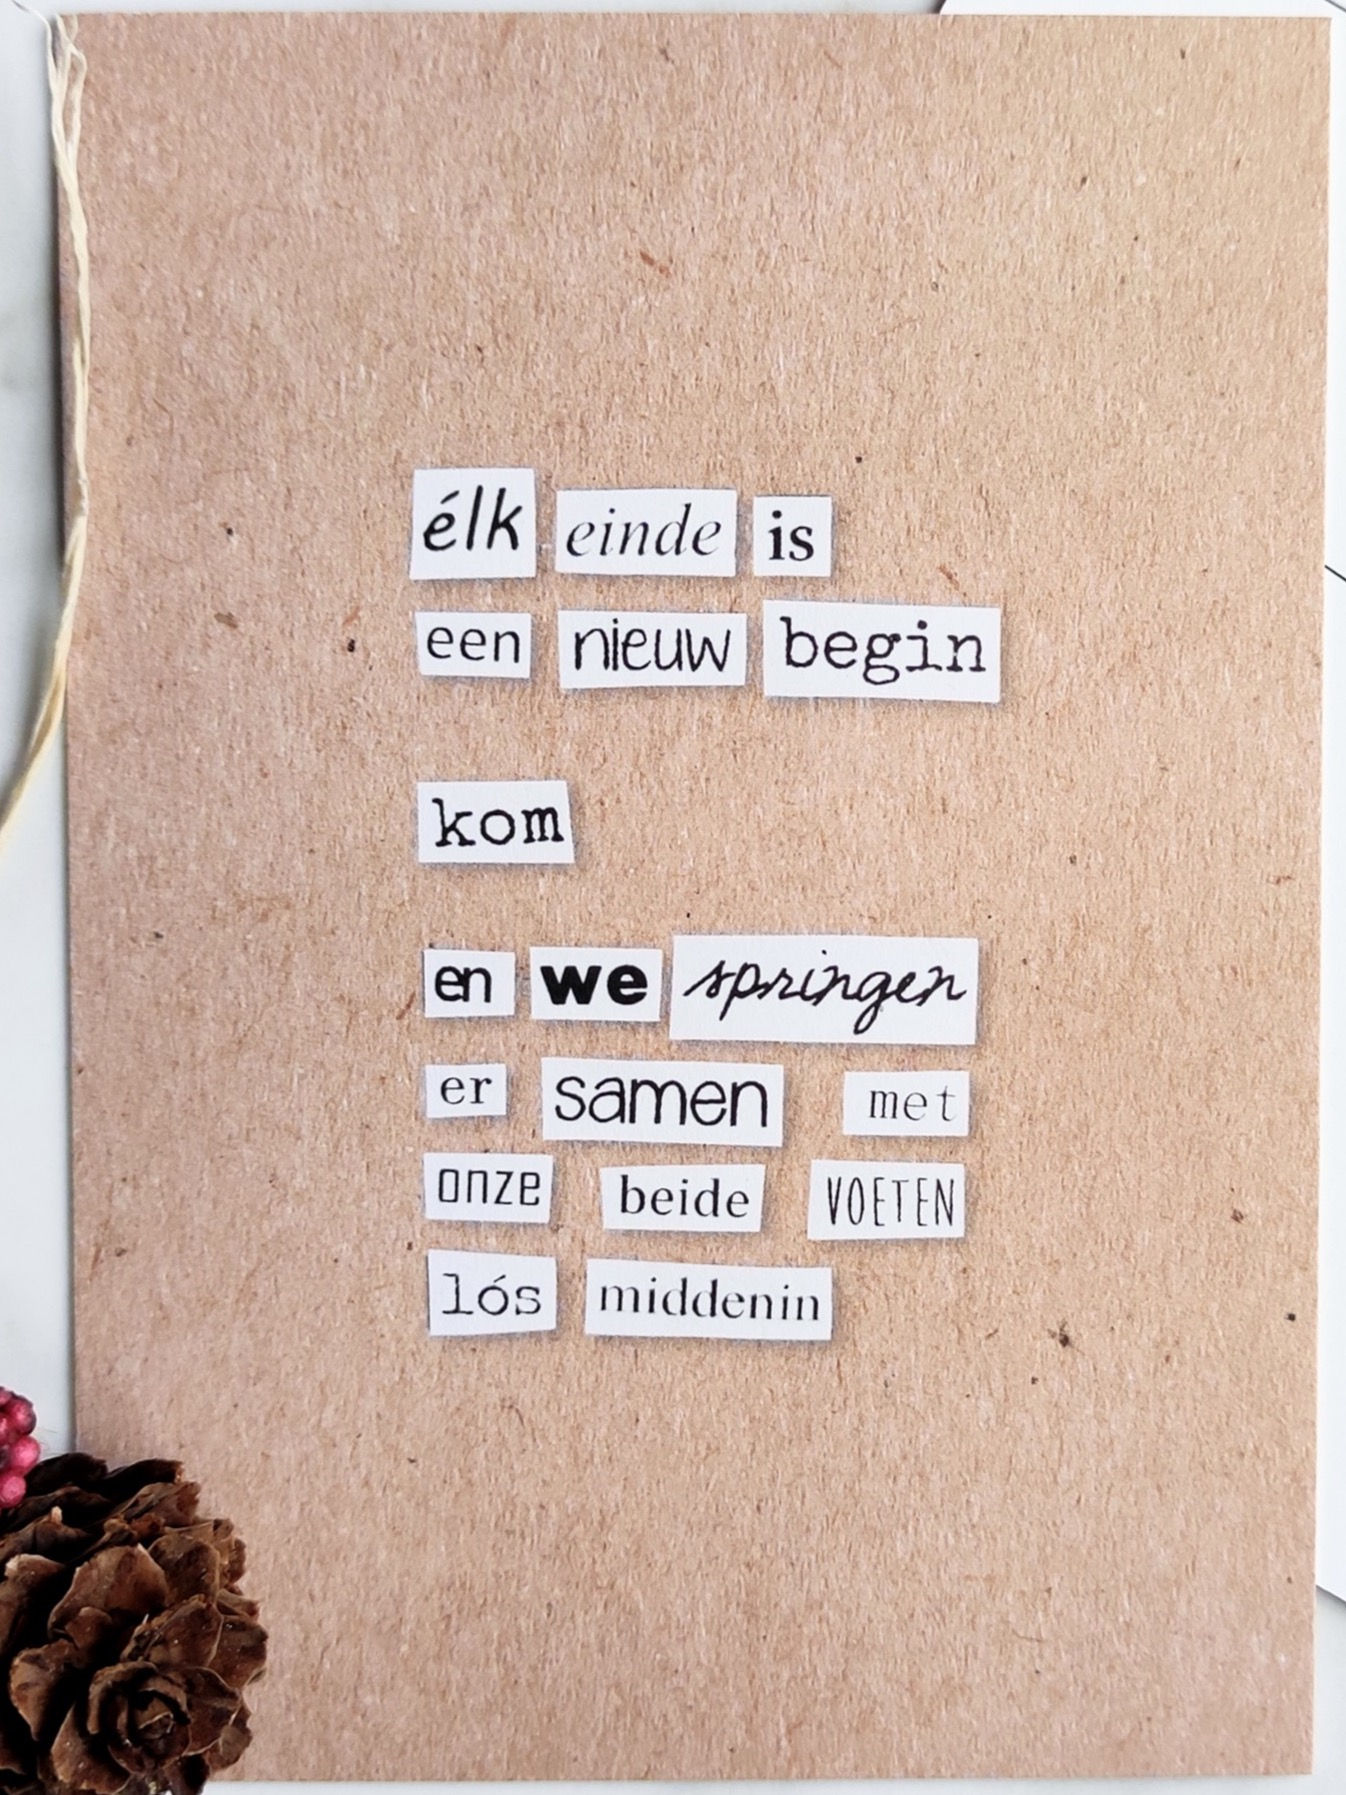 élk einde is
een nieuw begin
kom
en we springen
er samen met
onze beide VOETEN
lós middenin